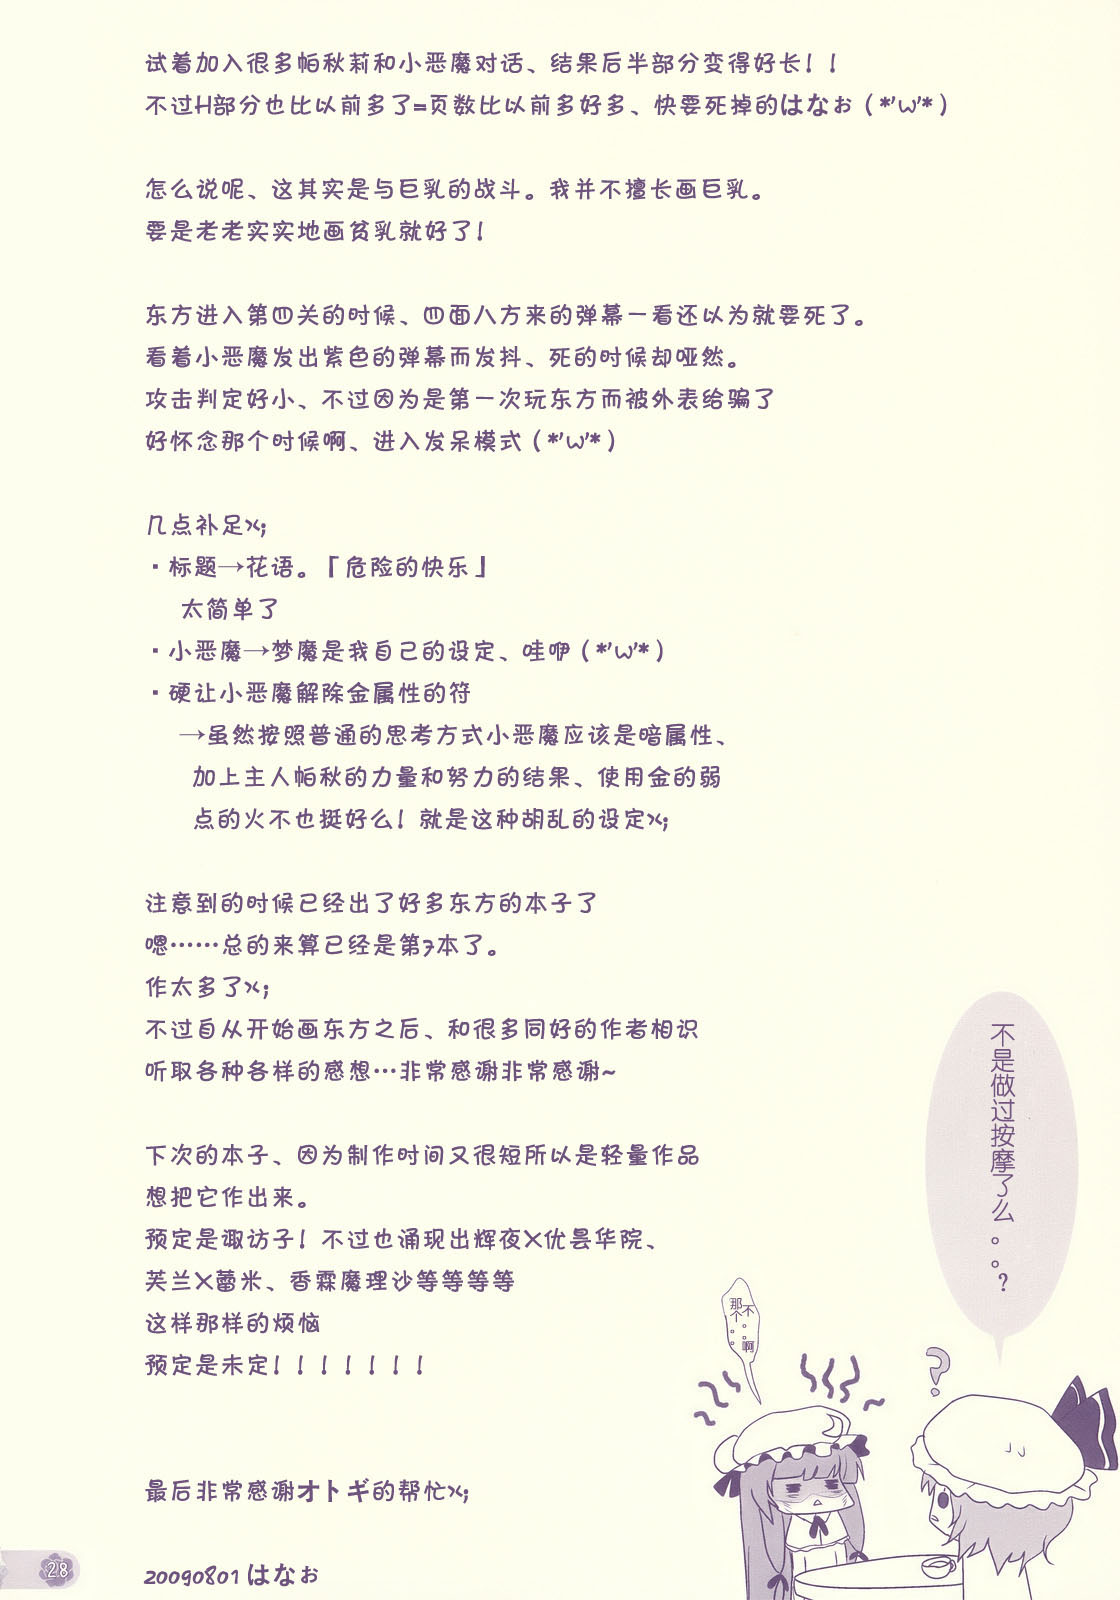 试着加入很多帕秋莉和小恶魔对话、结果后半部分变得好长！！
不过H部分也比以前多了=页数比以前多好多、快要死掉的はなお（*'ω'*）
怎么说呢、这其实是与巨乳的战斗。我并不擅长画巨乳。
要是老老实实地画贫乳就好了！
东方进入第四关的时候、四面八方来的弹幕一看还以为就要死了。
看着小恶魔发出紫色的弹幕而发抖、死的时候却哑然。
攻击判定好小、不过因为是第一次玩东方而被外表给骗了
好怀念那个时候啊、进入发呆模式（*'ω'*）
几点补足x;
・标题→花语。「危险的快乐」
太简单了
・小恶魔→梦魔是我自己的设定、哇咿（*'ω'*）
・硬让小恶魔解除金属性的符
→虽然按照普通的思考方式小恶魔应该是暗属性、
加上主人帕秋的力量和努力的结果、使用金的弱
点的火不也挺好么！就是这种胡乱的设定x;
注意到的时候已经出了好多东方的本子了
嗯……总的来算已经是第7本了。
作太多了x;
不过自从开始画东方之后、和很多同好的作者相识
听取各种各样的感想…非常感谢非常感谢~
下次的本子、因为制作时间又很短所以是轻量作品
想把它作出来。
预定是诹访子！不过也涌现出辉夜X优昙华院、
芙兰X蕾米、香霖魔理沙等等等等
这样那样的烦恼
预定是未定！！！！！！！
最后非常感谢オトギ的帮忙x;
20090801 はなお
不是做过按摩了么。。？
不。。啊
那个。。
28